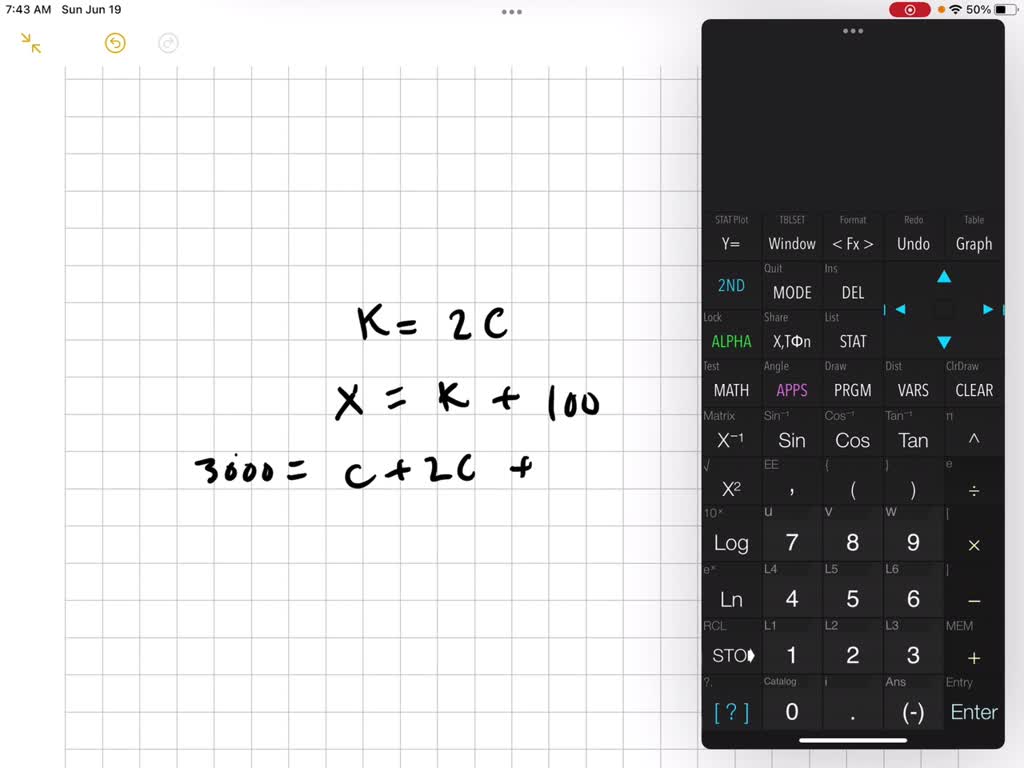 7:43 AM Sun Jun 19
50%
K = 2C
X = K + 100
3000 = C + 2C +
STAT Plot TBLSET Format Redo Table
Y= Window < Fx > Undo Graph
Quit Ins
2ND MODE DEL
Lock Share List
ALPHA X,TΦn STAT
Test Angle Draw Dist ClrDraw
MATH APPS PRGM VARS CLEAR
Matrix Sin⁻¹ Cos⁻¹ Tan⁻¹ π
X⁻¹ Sin Cos Tan ^
√ EE { } e
X² , ( ) ÷
10ˣ u v w [
Log 7 8 9 ×
eˣ L4 L5 L6 ]
Ln 4 5 6 −
RCL L1 L2 L3 MEM
STO 1 2 3 +
?. Catalog i Ans Entry
[ ? ] 0 . (-) Enter